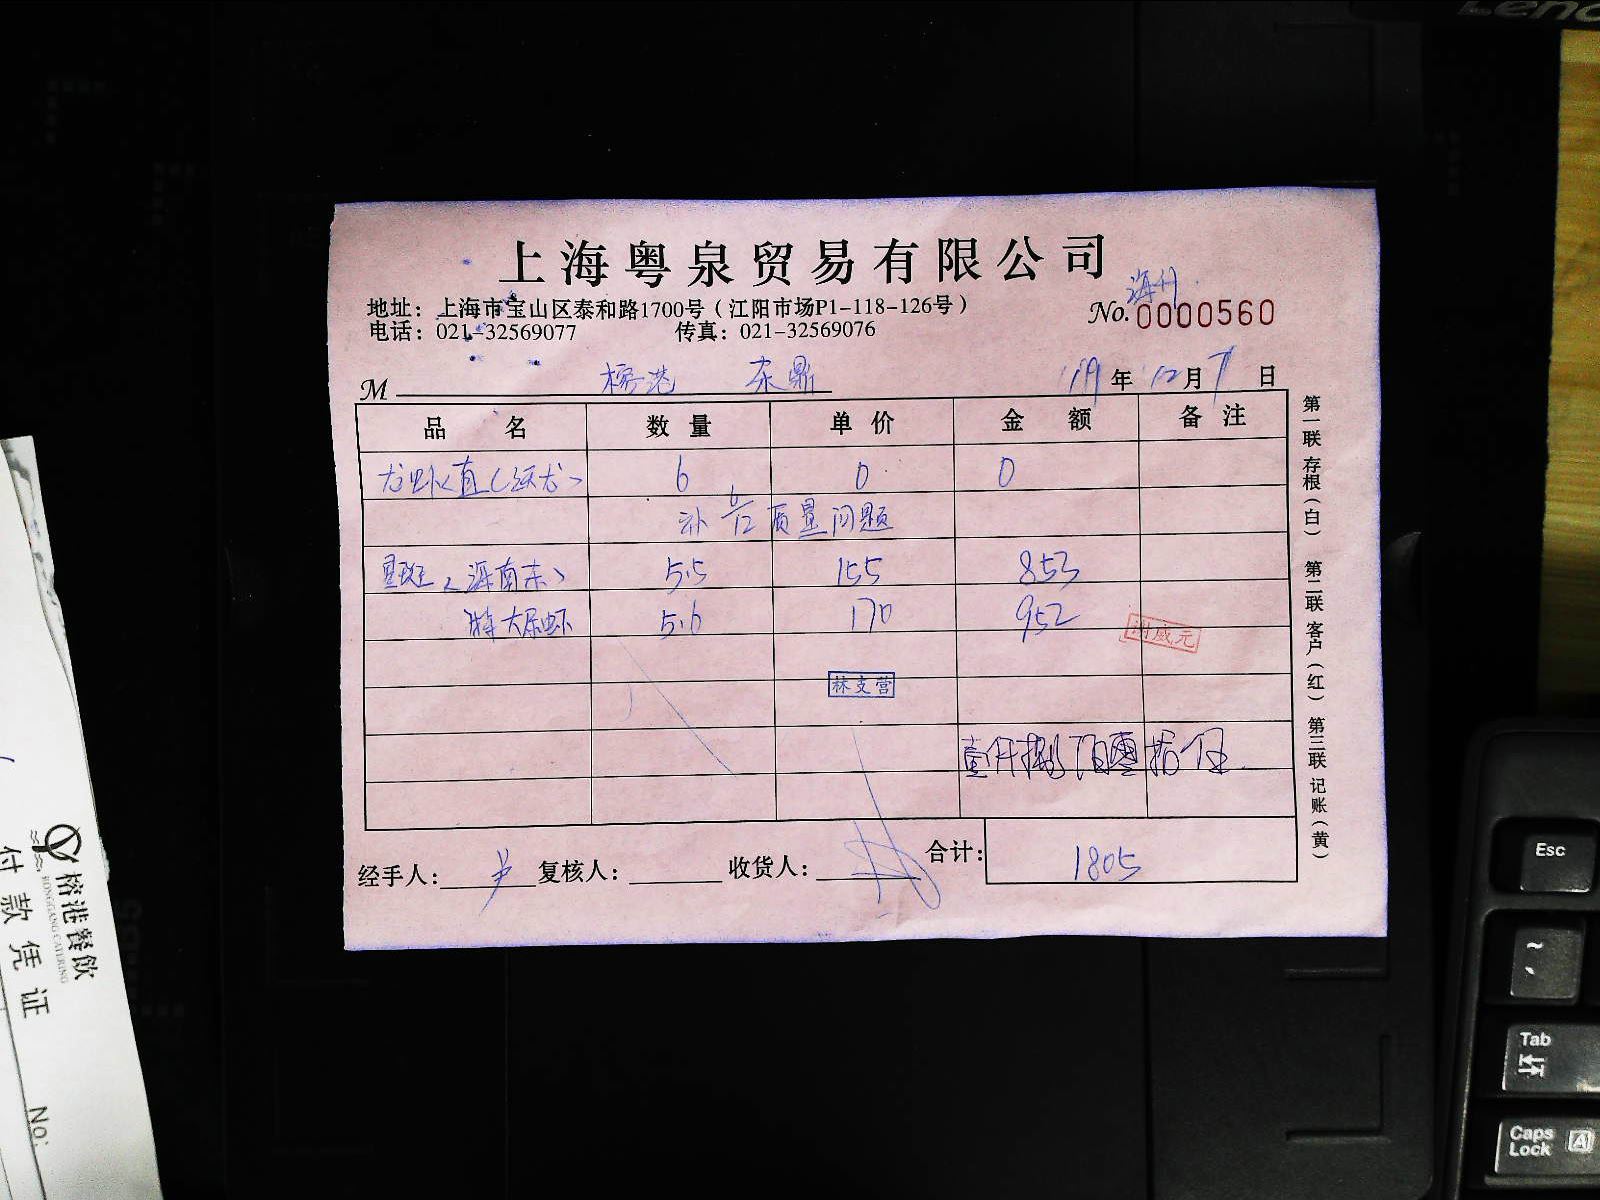 Leno
上海粤泉贸易有限公司
地址：上海市宝山区泰和路1700号（江阳市场P1-118-126号）
电话：021-32569077 传真：021-32569076
No.0000560
M 榕港 东鼎 19年12月7日
品名 数量 单价 金额 备注
6 0 0
质量问题
星斑 5.5 155 853
特大尿虾 5.6 170 952
林支营
壹仟捌百零拾伍
经手人： 复核人： 收货人： 合计：1805
第一联存根（白）第二联客户（红）第三联记账（黄）
榕港餐飲
RONGGANG CATERING
付款凭证
No:
Esc
~
Tab
Caps Lock
A